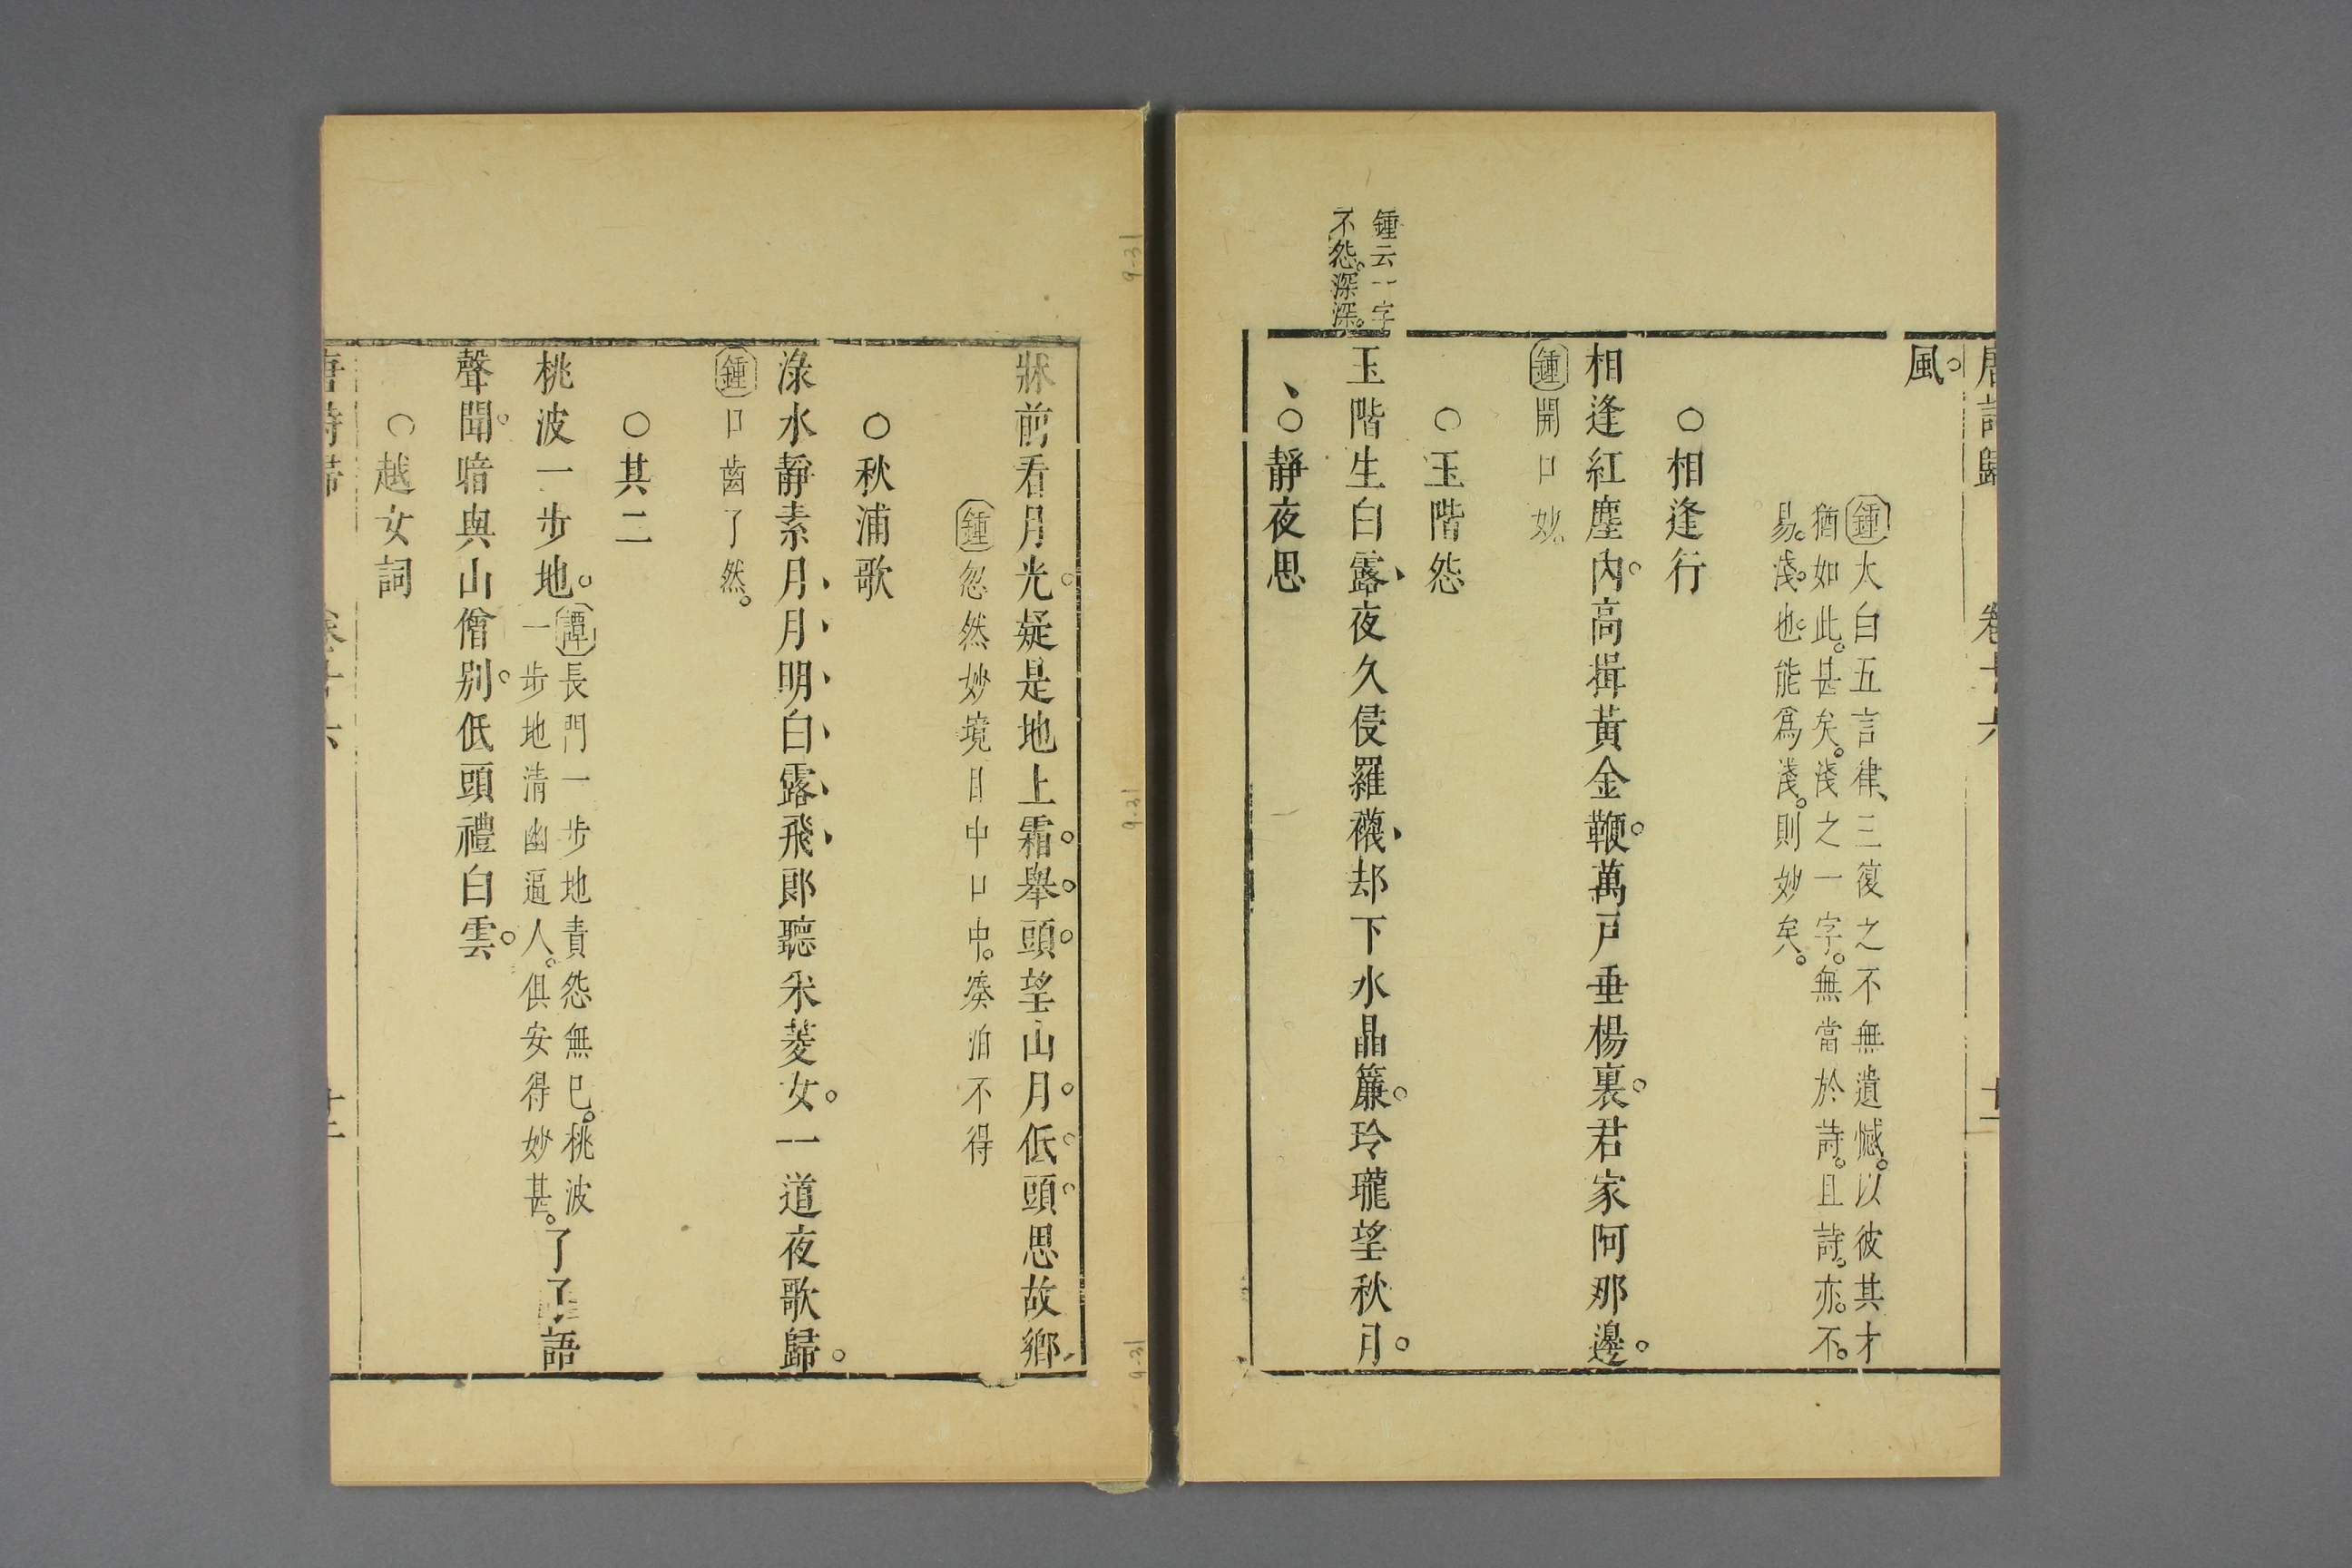 唐詩歸 卷十六
風。
鍾 太白五言律、三復之不無遺憾。以彼其才
猶如此。甚矣。淺之一字。無當於詩。且詩。亦。不。
易。淺。也。能爲淺。則妙矣。
○相逢行
相逢紅塵內。高揖黃金鞭。萬戸垂楊裏。君家阿那邊。
鍾 開口妙。
○玉階怨
鍾云一字
不怨。深深。
玉階生白露、夜久侵羅襪、却下水晶簾。玲瓏望秋月。
、○靜夜思
牀前看月光。疑是地上霜。舉。頭。望山月。低。頭。思故鄉、
鍾 忽然妙境目中口中。凑泊不得
○秋浦歌
淥水靜素月、月、明、白露、飛、郎聽采菱女。一道夜歌歸。
鍾 口齒了然。
○其二
桃波一步地。
譚 長門一步地責怨無已。桃波
一步地清幽逼人。俱安得妙甚。
了了語
聲聞。喑與山僧别。低頭禮白雲。
○越女詞
唐詩歸 卷十六